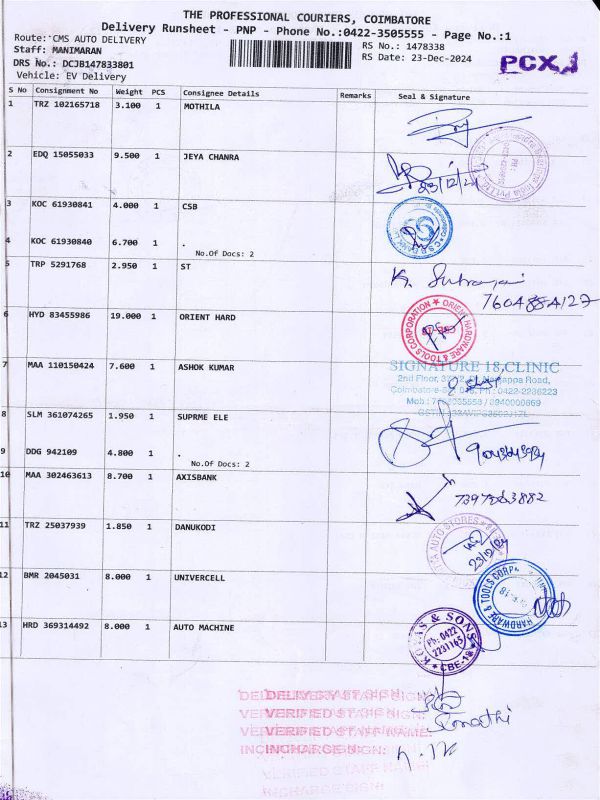 THE PROFESSIONAL COURIERS, COIMBATORE
Delivery Runsheet - PNP - Phone No.:0422-3505555 - Page No.:1
Route: CMS AUTO DELIVERY
Staff: MANIMARAN
DRS No.: DCJB147833801
Vehicle: EV Delivery
RS No.: 1478338
RS Date: 23-Dec-2024
PCX
S No Consignment No Weight PCS Consignee Details Remarks Seal & Signature
1 TRZ 102165718 3.100 1 MOTHILA
2 EDQ 15055033 9.500 1 JEYA CHANRA
23/12/24
3 KOC 61930841 4.000 1 CSB
4 KOC 61930840 6.700 1 .
No.Of Docs: 2
5 TRP 5291768 2.950 1 ST
7604884127
6 HYD 83455986 19.000 1 ORIENT HARD
ORIENT HARDWARE & TOOLS CORPORATION
7 MAA 110150424 7.600 1 ASHOK KUMAR
SIGNATURE 18, CLINIC
2nd Floor, Nanjappa Road,
Coimbatore Ph : 0422-2236223
8 SLM 361074265 1.950 1 SUPRME ELE
9 DDG 942109 4.800 1 .
No.Of Docs: 2
10 MAA 302463613 8.700 1 AXISBANK
11 TRZ 25037939 1.850 1 DANUKODI
AUTO STORES
23/12/24
12 BMR 2045031 8.000 1 UNIVERCELL
HARDWARE & TOOLS CORP
13 HRD 369314492 8.000 1 AUTO MACHINE
& SONS
Ph: 0422
2231145
CBE-18
DELIVERY STAFF SIGN:
VERIFIED STAFF SIGN:
VERIFIED STAFF NAME:
INCHARGE SIGN: